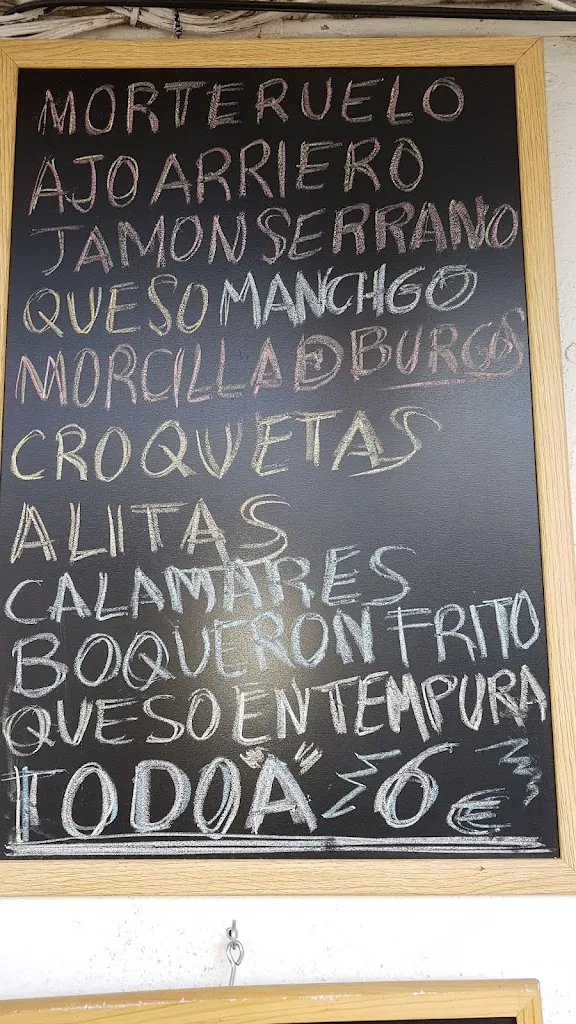 MORTERUELO
AJOARRIERO
JAMON SERRANO
QUESO MANCHGO
MORCILLA D BURGOS
CROQUETAS
ALITAS
CALAMARES
BOQUERON FRITO
QUESO EN TEMPURA
TODO "A" 6 €